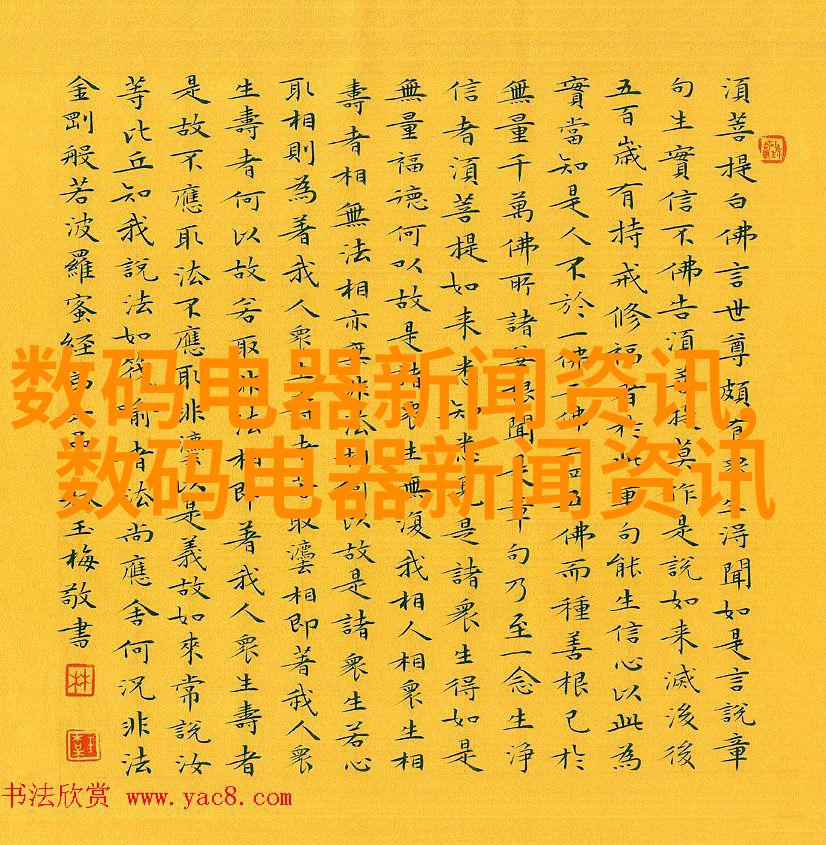 湏菩提白佛言世尊頗有得聞如是言說章
句生實信不佛告湏菩提莫作是說如来滅後後
五百歲有持戒修福者於此章句能生信心以此為
實當知是人不於一佛二佛三四五佛而種善根已於
無量千萬佛所諸善根聞是章句乃至一念生淨
信者湏菩提如来悉知悉見是諸衆生得如是
無量福德何以故是諸衆生無復我相人相衆生相
壽者相無法相亦無非法相何以故是諸衆生若心
取相則為著我人衆生壽者若取灋相即著我人衆
生壽者何以故若取非法相即著我人衆生壽者
是故不應取法不應取非灋以是義故如來常說汝
等比丘知我說法如筏喻者法尚應舍何況非法
金剛般若波羅蜜經玉梅敬書
林
数码电器新闻资讯,
数码电器新闻资讯
书法欣赏 www.yac8.com